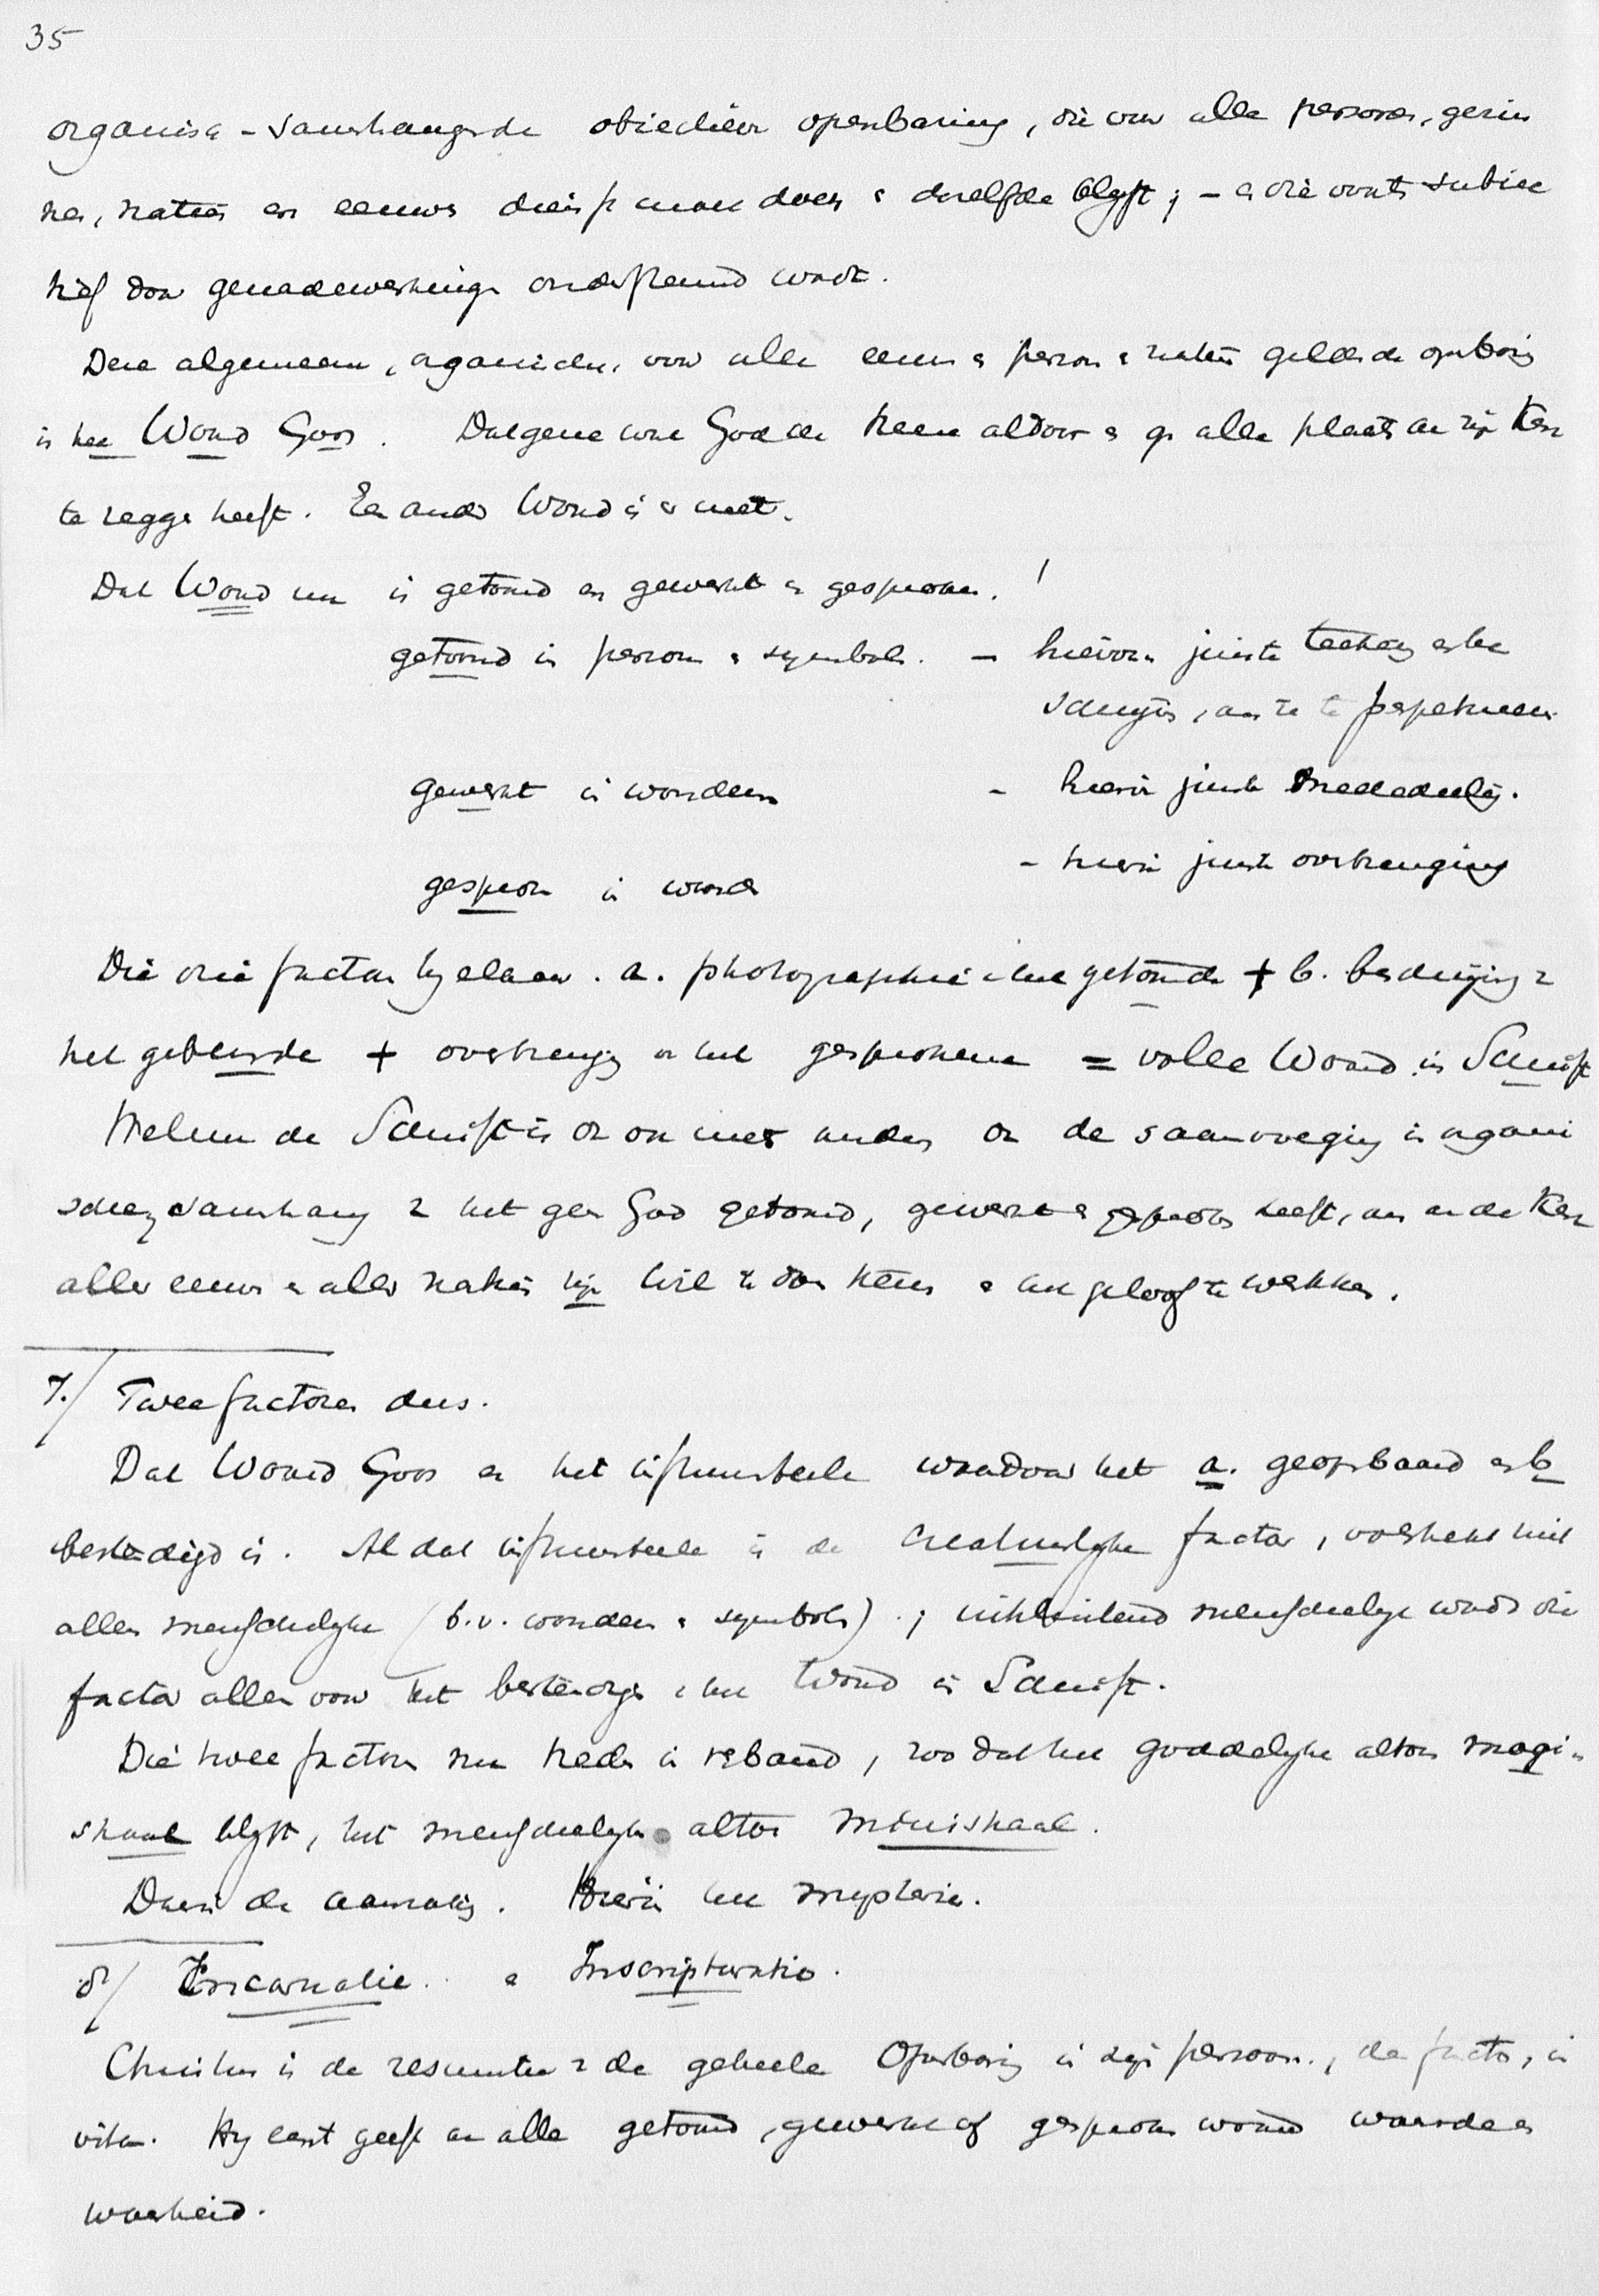 35
organisch-samenhangende objectieve openbaring, die voor alle personen, gezin
nen, natiën en eeuwen dienst moet doen & dezelfde blijft; – & die voorts subiec
tief door genadewerkingen ondersteund wordt.
Deze algemeene, organische, voor alle eeuwen & personen & natiën geldende openbaring
is het Woord Gods. Datgene wat God de Heere altoos & op alle plaats aan zijn Kerk
te zeggen heeft. Een ander Woord is er niet.
Dat Woord nu is getoond en gewerkt en gesproken.
getoond in personen & symbolen. – hiervan juiste teekening en be
schrijving, om ze te perpetueeren
gewerkt in wonderen – hiervan juiste mededeeling.
– hiervan juiste overbrenging
gesproken in woorden
Die drie factoren bij elkaar. a. photographie v. het getoonde + b. beschrijving v
het gebeurde + overbrenging v. het gesprokene = volle Woord in Schrift
Welnu de Schrift is dan ook niet anders dan de saamvoeging in organi
schen samenhang v hetgeen God getoond, gewerkt & gesproken heeft, om aan de Kerk
aller eeuwen & aller natiën zijn wil te doen kennen & het geloof te wekken.
7./ Twee factoren dus.
Dat Woord Gods en het instrumenteele waardoor het a. geopenbaard en b
bestendigd is. Al dat instrumenteele is de creatuurlijke factor, volstrekt niet
alleen menschelijke (b.v. wonderen & symbolen).; uitsluitend menschelijk wordt die
factor alleen voor het bestendigen v het Woord in Schrift.
Die twee factoren nu treden in verband, zoo dat het goddelijke altoos magi-
straal blijft, het menschelijke altoos ministraal.
Hierin het mysterie.
8/ Incarnatie. & Inscripturatio.
Christus is de resumtie v de geheele Openbaring in zijn persoon., de facto, in
vita. Hij eerst geeft aan alle getoond, gewerkt of gesproken woord waarde en
waarheid.